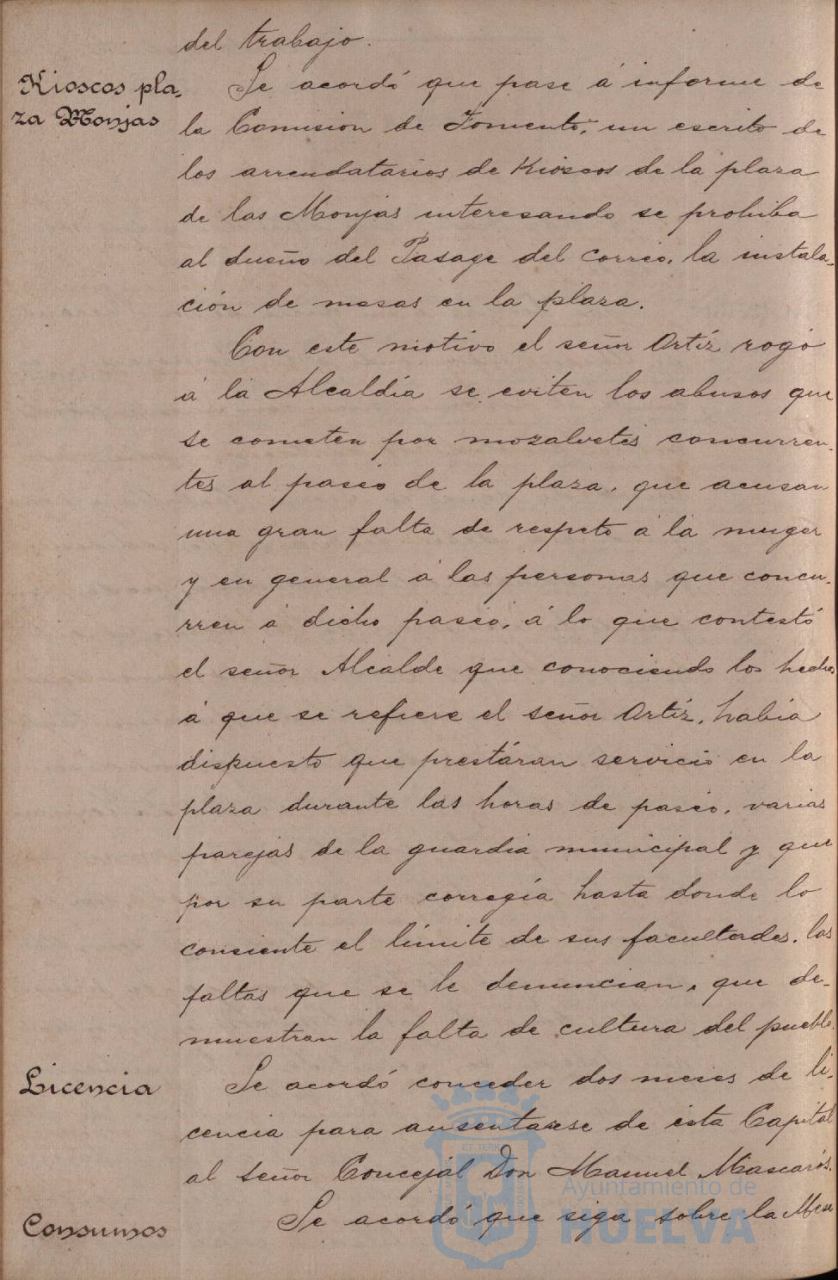 del trabajo.
Kioscos pla-
za Monjas
Se acordó que pase á informe de
la Comision de Fomento, un escrito de
los arrendatarios de Kioscos de la plaza
de las Monjas interesando se prohiba
al dueño del Pasage del Correo, la instala-
ción de mesas en la plaza.
Con este motivo el señor Ortíz rogó
á la Alcaldía se eviten los abusos que
se cometen por mozalvetes concurren-
tes al paseo de la plaza, que acusan
una gran falta de respeto á la muger
y en general á las personas que concu-
rren á dicho paseo, á lo que contestó
el señor Alcalde que conociendo los hechos
á que se refiere el señor Ortíz, había
dispuesto que prestáran servicio en la
plaza durante las horas de paseo, varias
parejas de la guardia municipal y que
por su parte corregía hasta donde lo
consiente el límite de sus facultades, las
faltas que se le denuncian, que de-
muestran la falta de cultura del pueblo.
Licencia
Se acordó conceder dos meses de li-
cencia para ausentarse de esta Capital
al señor Concejál Don Manuel Mascarós.
Consumos
Se acordó que siga sobre la Mesa
Ayuntamiento de
HUELVA